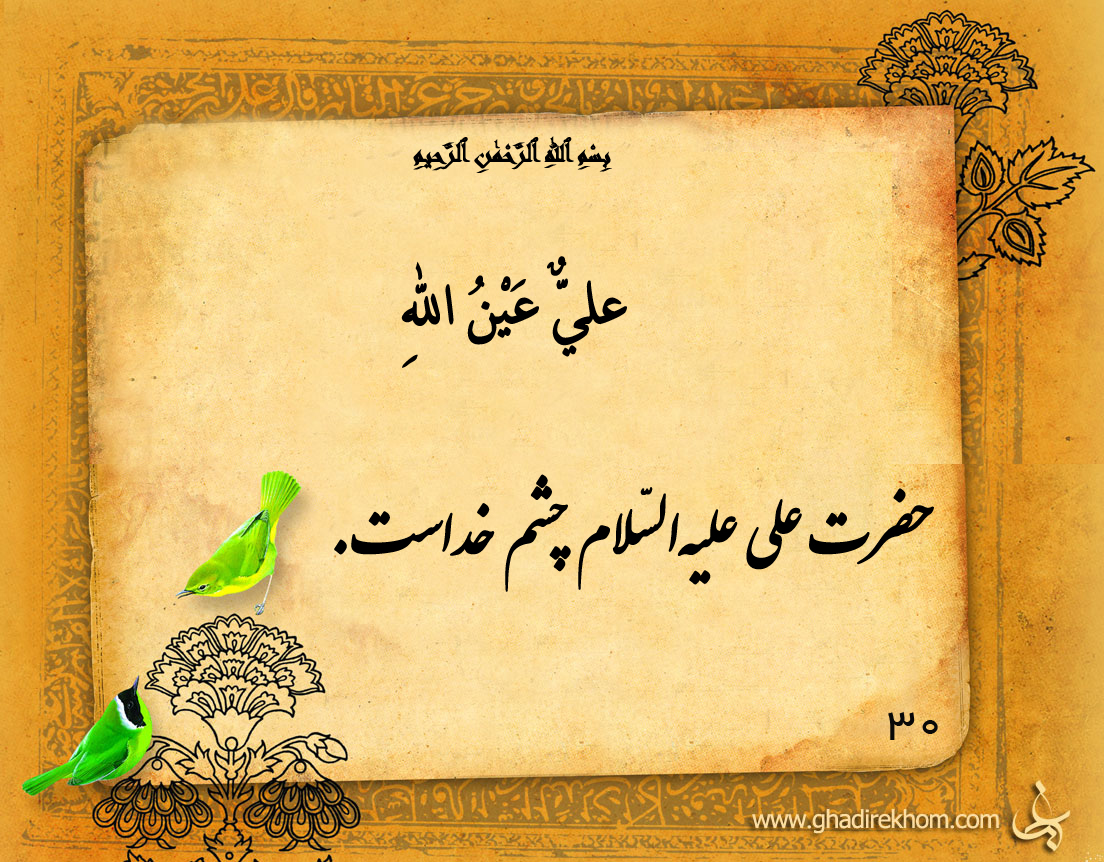 بِسْمِ اللَّهِ الرَّحْمَٰنِ الرَّحِيمِ
عليٌّ عَيْنُ اللهِ
حضرت علی علیه السّلام چشم خداست.
۳۰
www.ghadirekhom.com